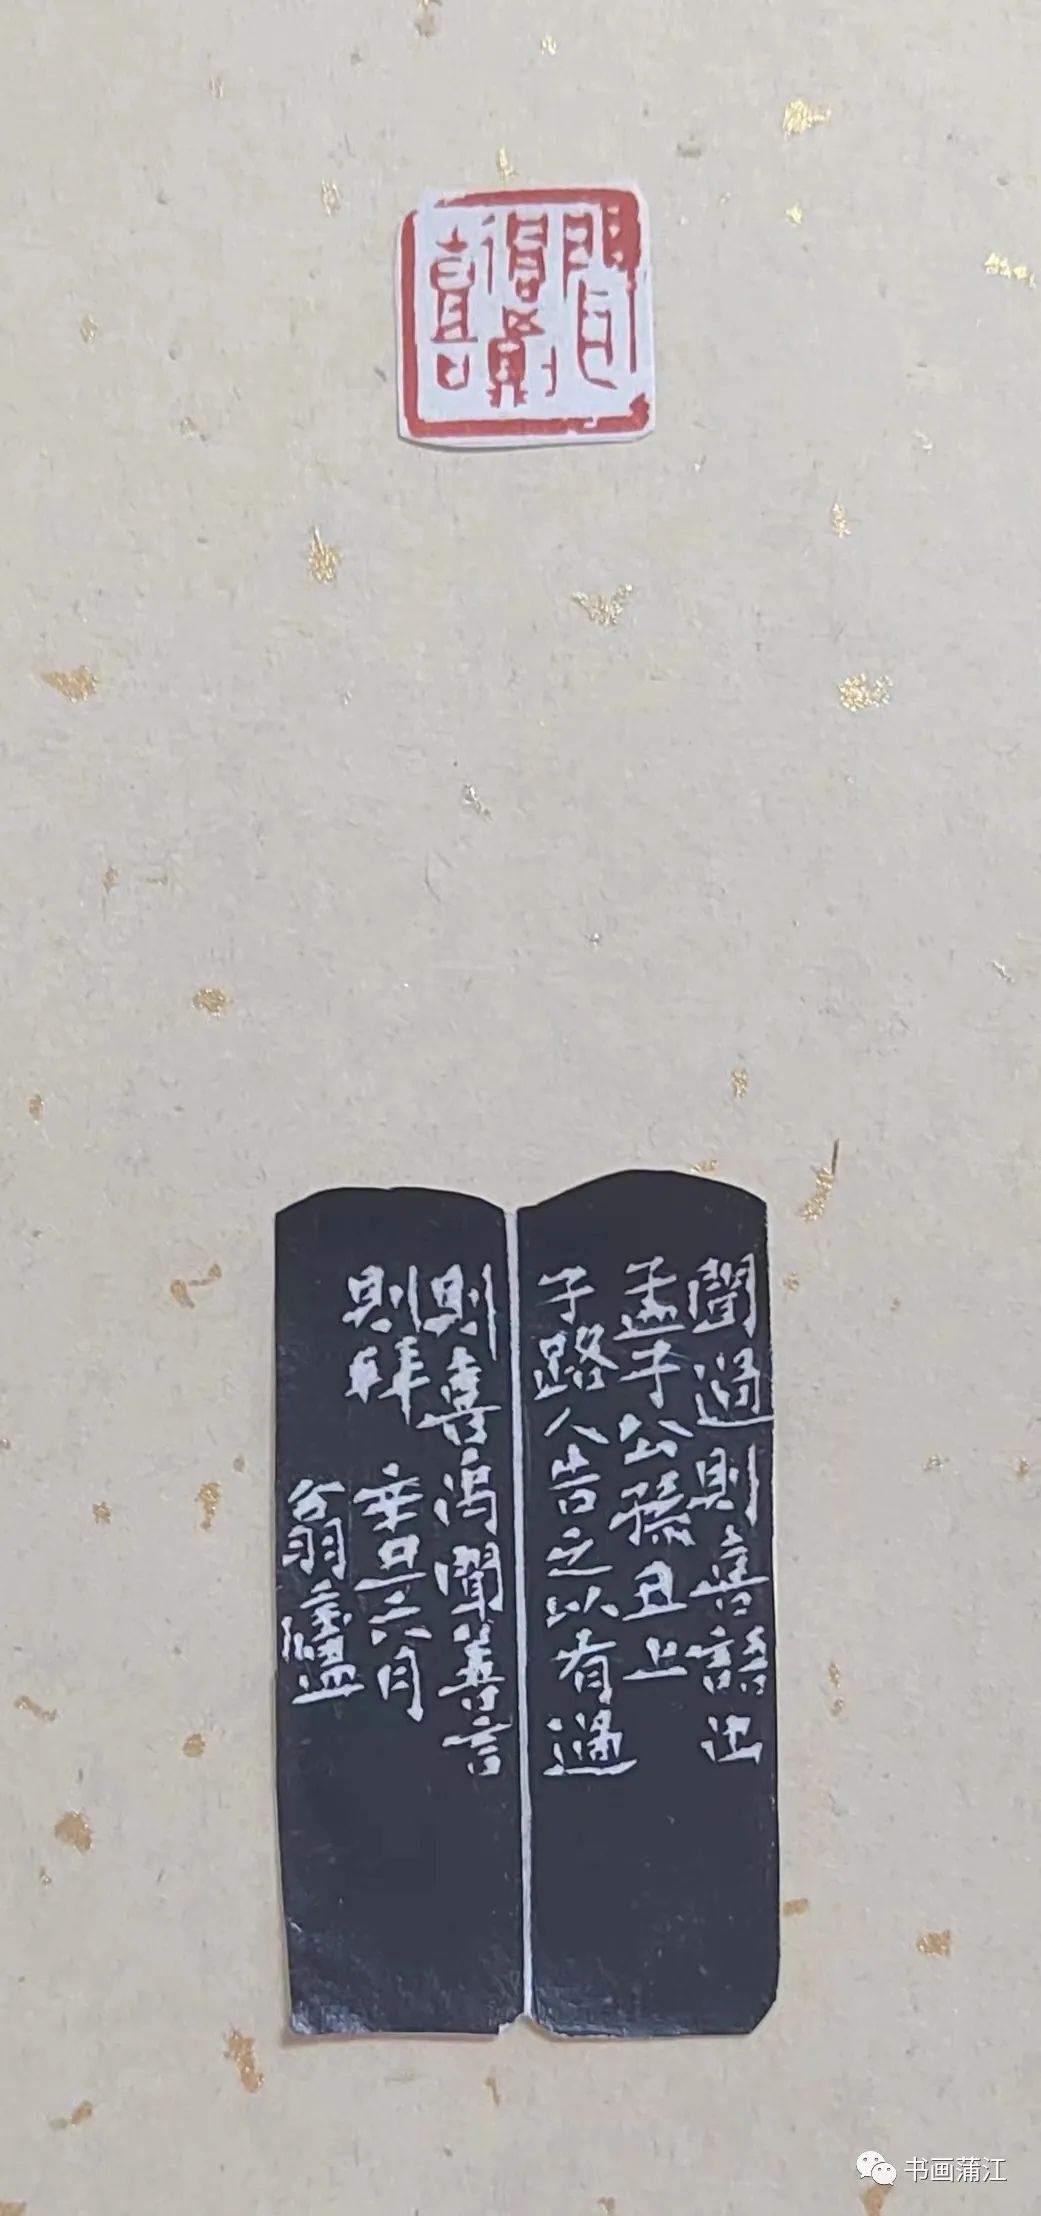 聞過則喜
聞過則喜語出
孟子公孫丑上
子路人告之以有過
則喜禹聞善言
則拜
辛丑六月
翁
書画蒲江